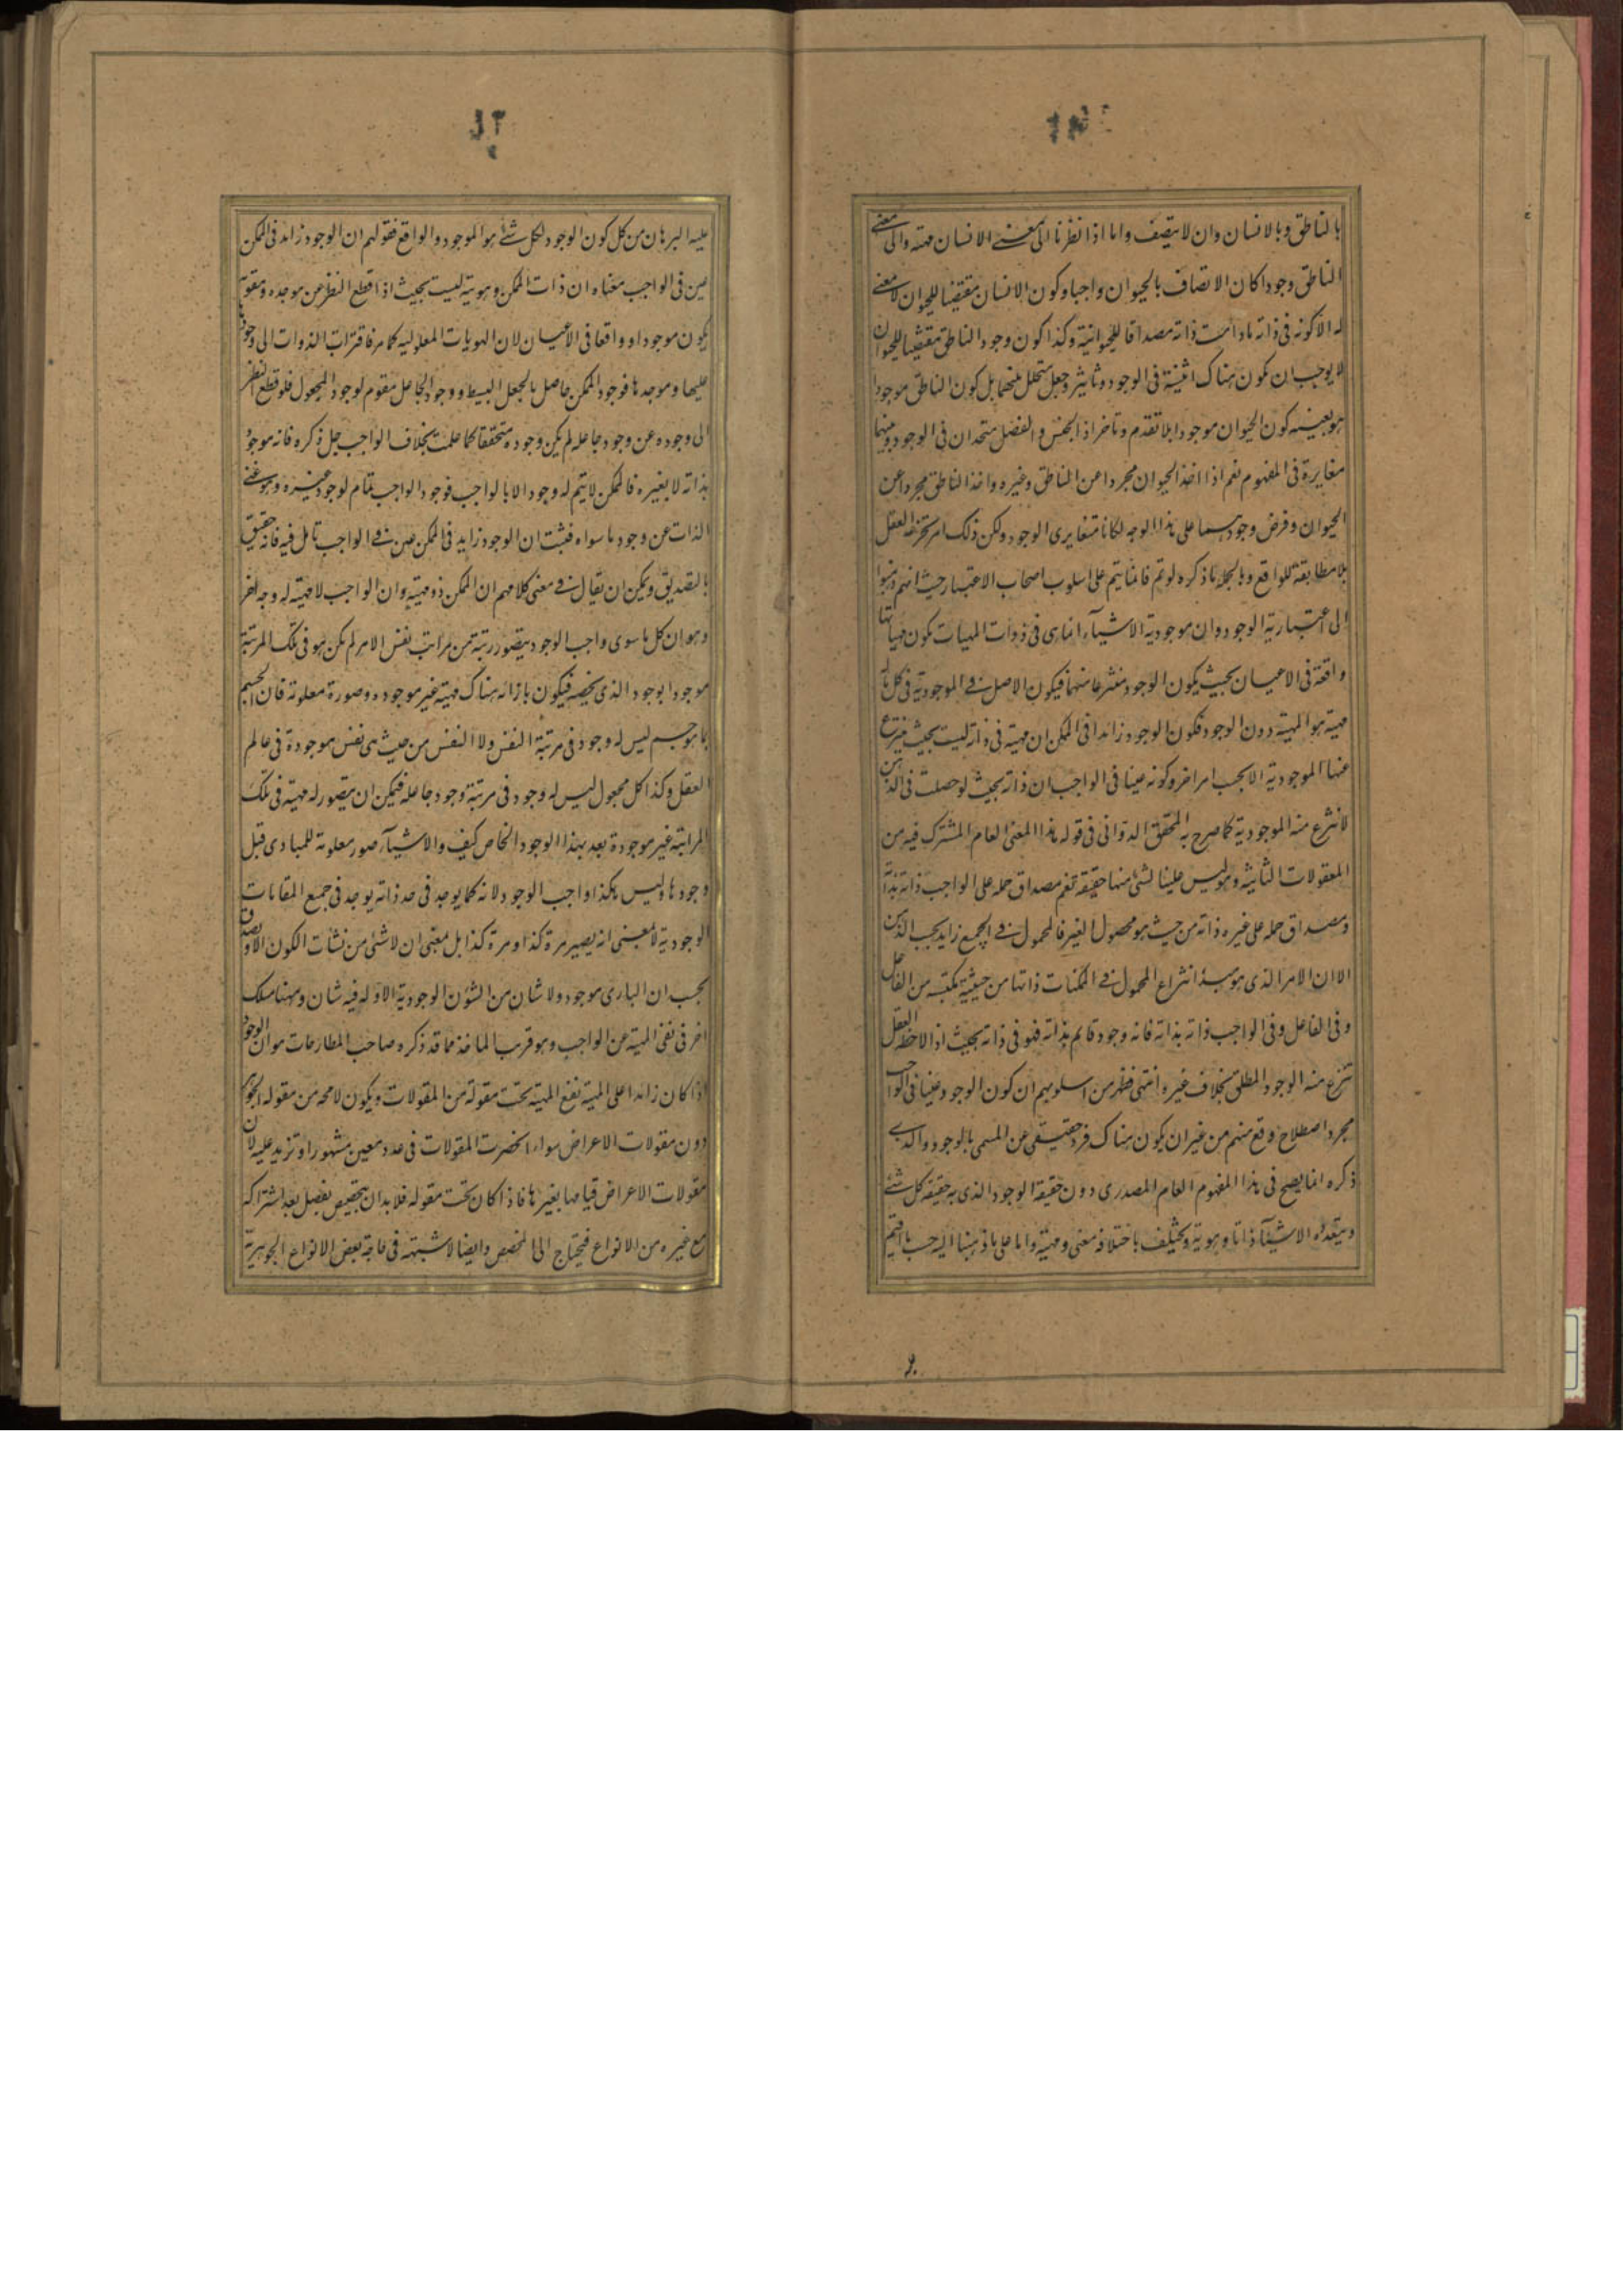 بالناطق وبالانسان وان لا يتصف واما اذا نظرنا الى معنى الانسان مهية والى معنى
الناطق وجودا كان الاتصاف بالحيوان واجبا وكون الانسان مقتضيا للحيوان لا معنى
له الا كونه فى ذاته مادامت ذاته مصداقا للحيوانية وكذا كون وجود الناطق مقتضيا للحيوان
لا يوجب ان يكون هناك اثنينة فى الوجود وتاثير وجعل متخلل بينهما بل كون الناطق موجودا
هو بعينه كون الحيوان موجودا بلا تقدم وتاخر اذ الجنس والفصل متحدان فى الوجود وبينهما
مغايرة فى المفهوم نعم اذا اخذ الحيوان مجردا عن الناطق وغيره واخذ الناطق مجردا عن
الحيوان وفرض وجودهما على هذا الوجه لكانا متغايرى الوجود ولكن ذلك امر يخترعه العقل
بلا مطابقة للواقع وبالجملة ما ذكره لو تم فانما يتم على اسلوب اصحاب الاعتبار حيث انهم ذهبوا
الى اعتبارية الوجود وان موجودية الاشياء انما هى فى ذوات المهيات بكون مهياتها
واقعة فى الاعيان بحيث يكون الوجود منتزعا منها فيكون الاصل فى الموجودية فى كل ماله
مهية هو المهية دون الوجود فكون الوجود زائدا فى الممكن ان مهية فى ذاته ليست بحيث ينتزع
عنها الموجودية الا بحسب امر اخر وكونه عينا فى الواجب ان ذاته بحيث لو حصلت فى الذهن
لانتزع منه الموجودية كما صرح به المحقق الدوانى فى قوله هذا المعنى العام المشترك فيه من
المعقولات الثانية وهو ليس عينا لشئ منها حقيقة نعم مصداق حمله على الواجب ذاته بذاته
ومصداق حمله على غيره ذاته من حيث هو محصول الغير فالمحمول فى الجميع زايد بحسب الذهن
الا ان الامر الذى هو مبدأ انتزاع المحمول فى الممكنات ذاتها من حيثية مكتسبة من الفاعل
وفى الفاعل وفى الواجب ذاته بذاته فانه وجود قايم بذاته فهو فى ذاته بحيث اذا لاحظه العقل
تنزع منه الوجود المطلق بخلاف غيره انتهى فظهر من اسلوبهم ان كون الوجود عينا فى الواجب
مجرد اصطلاح وقع منهم من غير ان يكون هناك فرد حقيقى عن المسمى بالوجود والذى
ذكره انما يصح فى هذا المفهوم العام المصدرى دون حقيقة الوجود الذى به حقيقة كل شئ
وبتعدده الاشياء ذاتا وهوية ويختلف باختلافه معنى ومهية واما على ما ذهبنا اليه حسب ما اقيم
عليه البرهان من كل كون الوجود لكل شئ هو الموجود والواقع فقولهم ان الوجود زايد فى الممكن
عين فى الواجب معناه ان ذات الممكن وهويته ليست بحيث اذا قطع النظر عن موجده ومقومه
يكون موجودا وواقعا فى الاعيان لان الهويات المعلولية كما مر فاقرات الذوات الى وجود
عليها وموجدها فوجود الممكن حاصل بالجعل البسيط ووجود الجاعل مقوم لوجود المجعول فلو قطع النظر
الى وجوده عن وجود جاعله لم يكن وجوده متحققا كما علمت بخلاف الواجب جل ذكره فانه موجود
بذاته لا بغيره فالممكن لا يتم له وجود الا بالواجب فوجود الواجب تمام لوجود غيره وهو غنى
الذات عن وجود ما سواه فثبت ان الوجود زايد فى الممكن عين فى الواجب تامل فيه فانه حقيق
بالتصديق ويمكن ان يقال فى معنى كلامهم ان الممكن ذو مهية وان الواجب لا مهية له وجه اخر
وهو ان كل ما سوى واجب الوجود يتصور رتبة من مراتب نفس الامر لم يكن هو فى تلك المرتبة
موجودا بوجود الذى يخصه فيكون بازائه هناك مهية غير موجوده وصورة معلومة فان الجسم
بما هو جسم ليس له وجود فى مرتبة النفس ولا النفس من حيث هى نفس موجودة فى عالم
العقل وكذا كل مجعول ليس له وجود فى مرتبة وجود جاعله فيمكن ان يتصور له مهية فى تلك
المرابتة غير موجودة بعد بهذا الوجود الخاص كيف والاشياء صور معلومة للمبادى قبل
وجودها وليس هكذا واجب الوجود لانه كما يوجد فى حد ذاته يوجد فى جميع المقامات
الوجودية لا بمعنى انه يصير مرة كذا ومرة كذا بل معنى ان لا شئ من نشأت الكون الا ويصدق
بحسب ان البارى موجود ولا شان من الشؤن الوجودية الا وله فيه شان وههنا مسلك
اخر فى نفى المهية عن الواجب وهو قريب الماخذ مما قد ذكره صاحب المطارحات هو ان الوجود
اذا كان زائدا على المهية تقع المهية تحت مقولة من المقولات ويكون لا محه من مقوله الجوهر
دون مقولات الاعراض سواء انحضرت المقولات فى عدد معين مشهور او تزيد عليه لان
مقولات الاعراض قيامها بغيرها فاذا كان تحت مقوله فلا بد ان يتخصص بفصل بعد اشتراكه
مع غيره من الانواع فيحتاج الى المخصص وايضا لا شبهة فى حاجة بعض الانواع الجوهرية